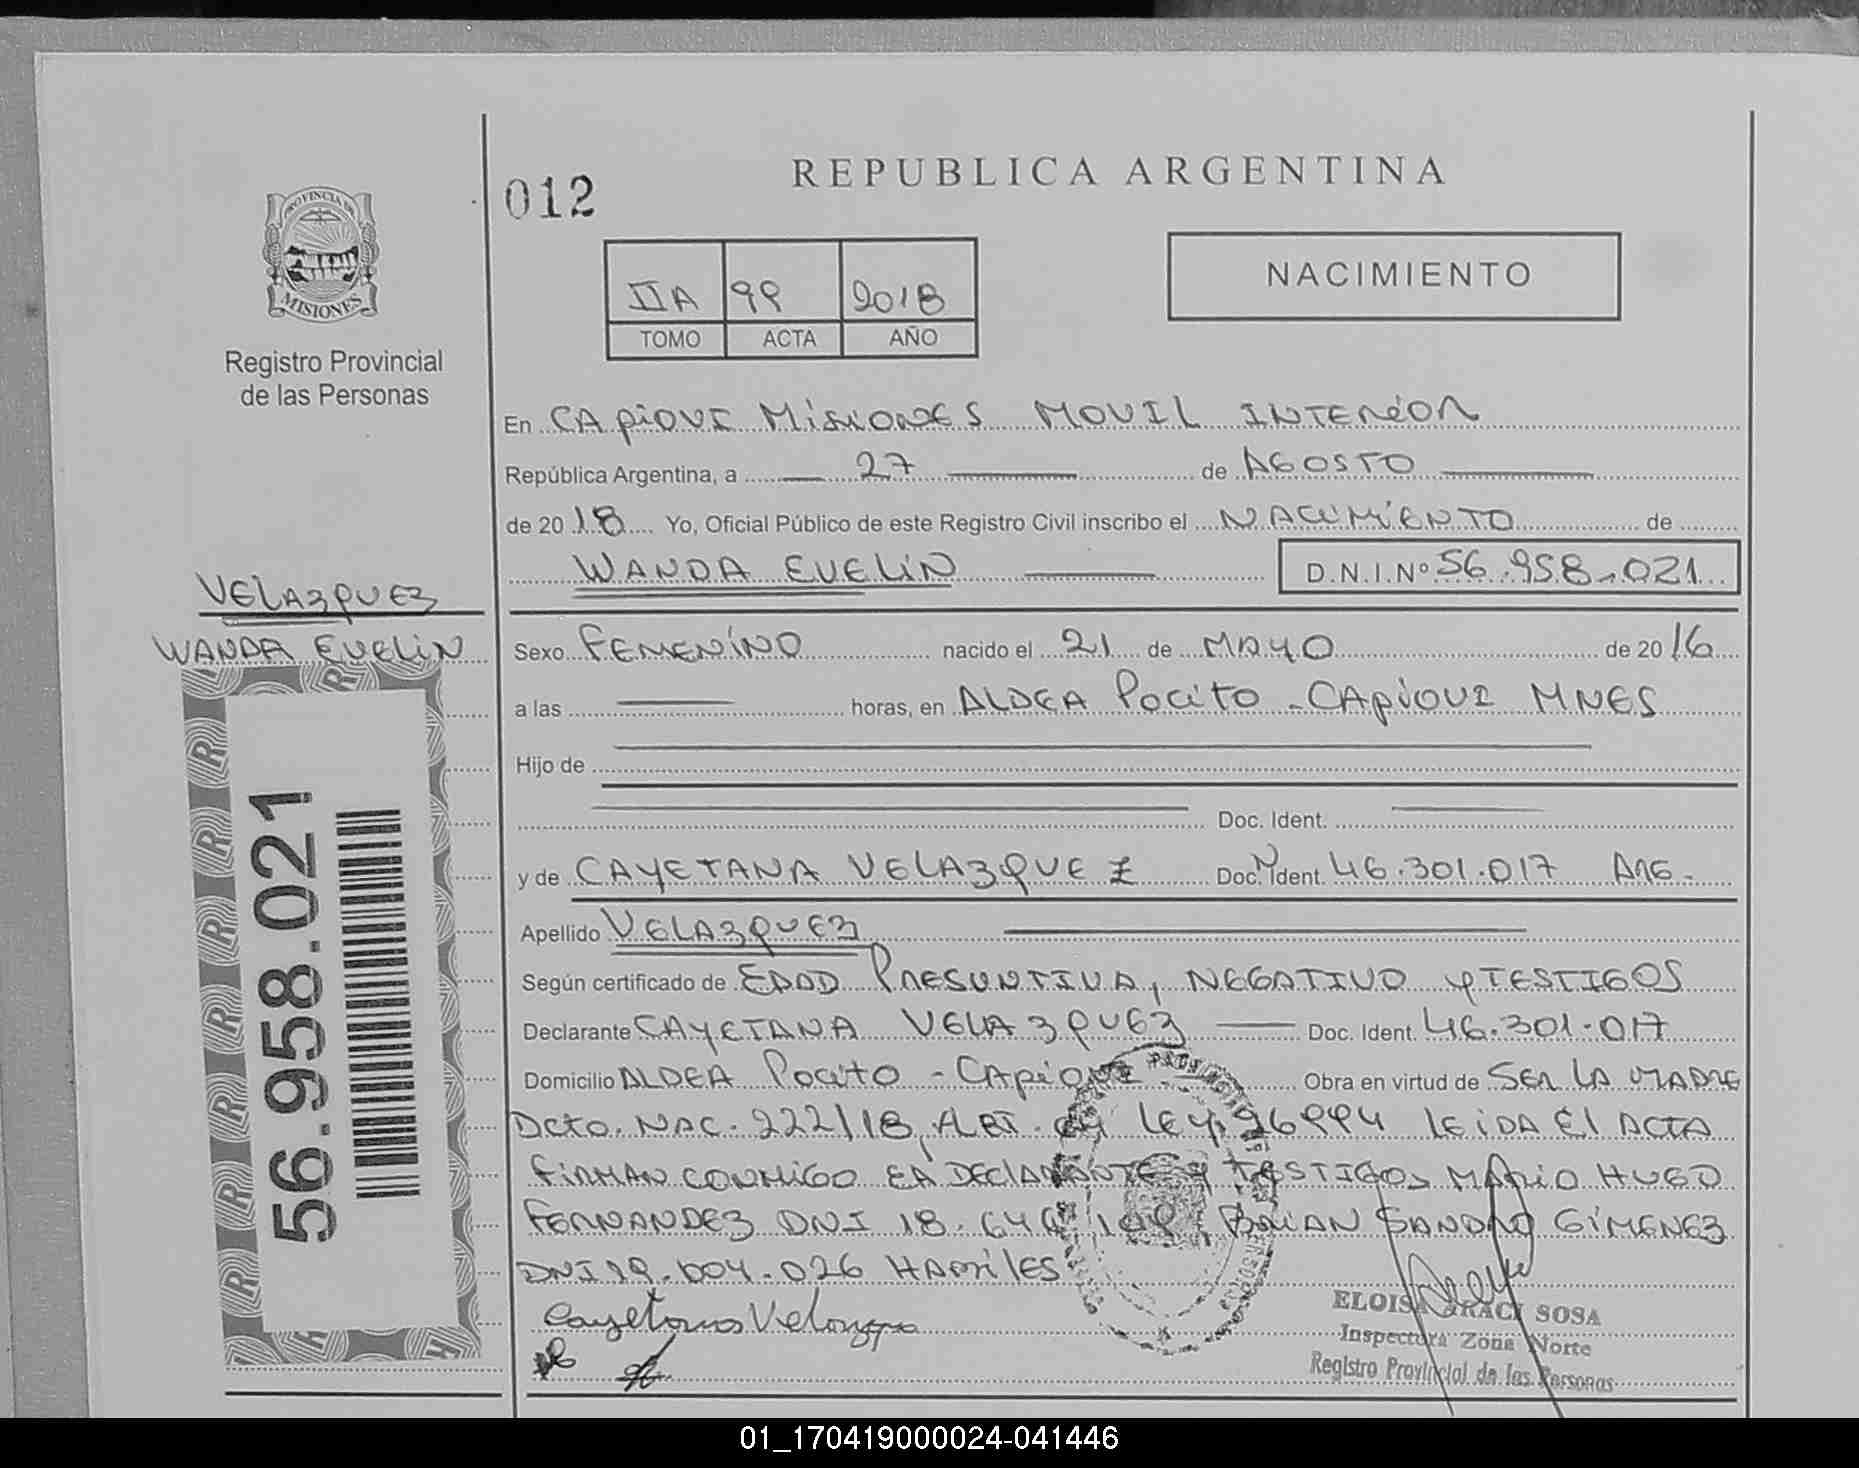 012
REPUBLICA ARGENTINA
PROVINCIA DE
MISIONES
Registro Provincial
de las Personas
IIA 99 2018
TOMO ACTA AÑO
NACIMIENTO
En CAPIOVI MISIONES MOVIL INTERIOR
República Argentina, a 27 de AGOSTO
de 20 18 Yo, Oficial Público de este Registro Civil inscribo el NACIMIENTO de
WANDA EVELIN D.N.I.Nº 56.958.021
VELAZQUEZ
WANDA EVELIN
56.958.021
Sexo FEMENINO nacido el 21 de MAYO de 20 16
a las horas, en ALDEA POCITO - CAPIOVI MNES
Hijo de
Doc. Ident.
y de CAYETANA VELAZQUEZ Doc. Ident. 46.301.017 ARG-
Apellido VELAZQUEZ
Según certificado de EDAD PRESUNTIVA, NEGATIVO Y TESTIGOS
Declarante CAYETANA VELAZQUEZ Doc. Ident. 46.301.017
Domicilio ALDEA POCITO - CAPIOVI Obra en virtud de SER LA MADRE
DCTO. NAC. 222/18, ART. LEY 26994 LEIDA EL ACTA
FIRMAN CONMIGO LA DECLARANTE Y TESTIGOS MARIO HUGO
FERNANDEZ DNI 18. BRIAN SANDRO GIMENEZ
DNI HABILES
Cayetana Velazque
ELOISA ARACI SOSA
Inspectora Zona Norte
Registro Provincial de las Personas
01_170419000024-041446